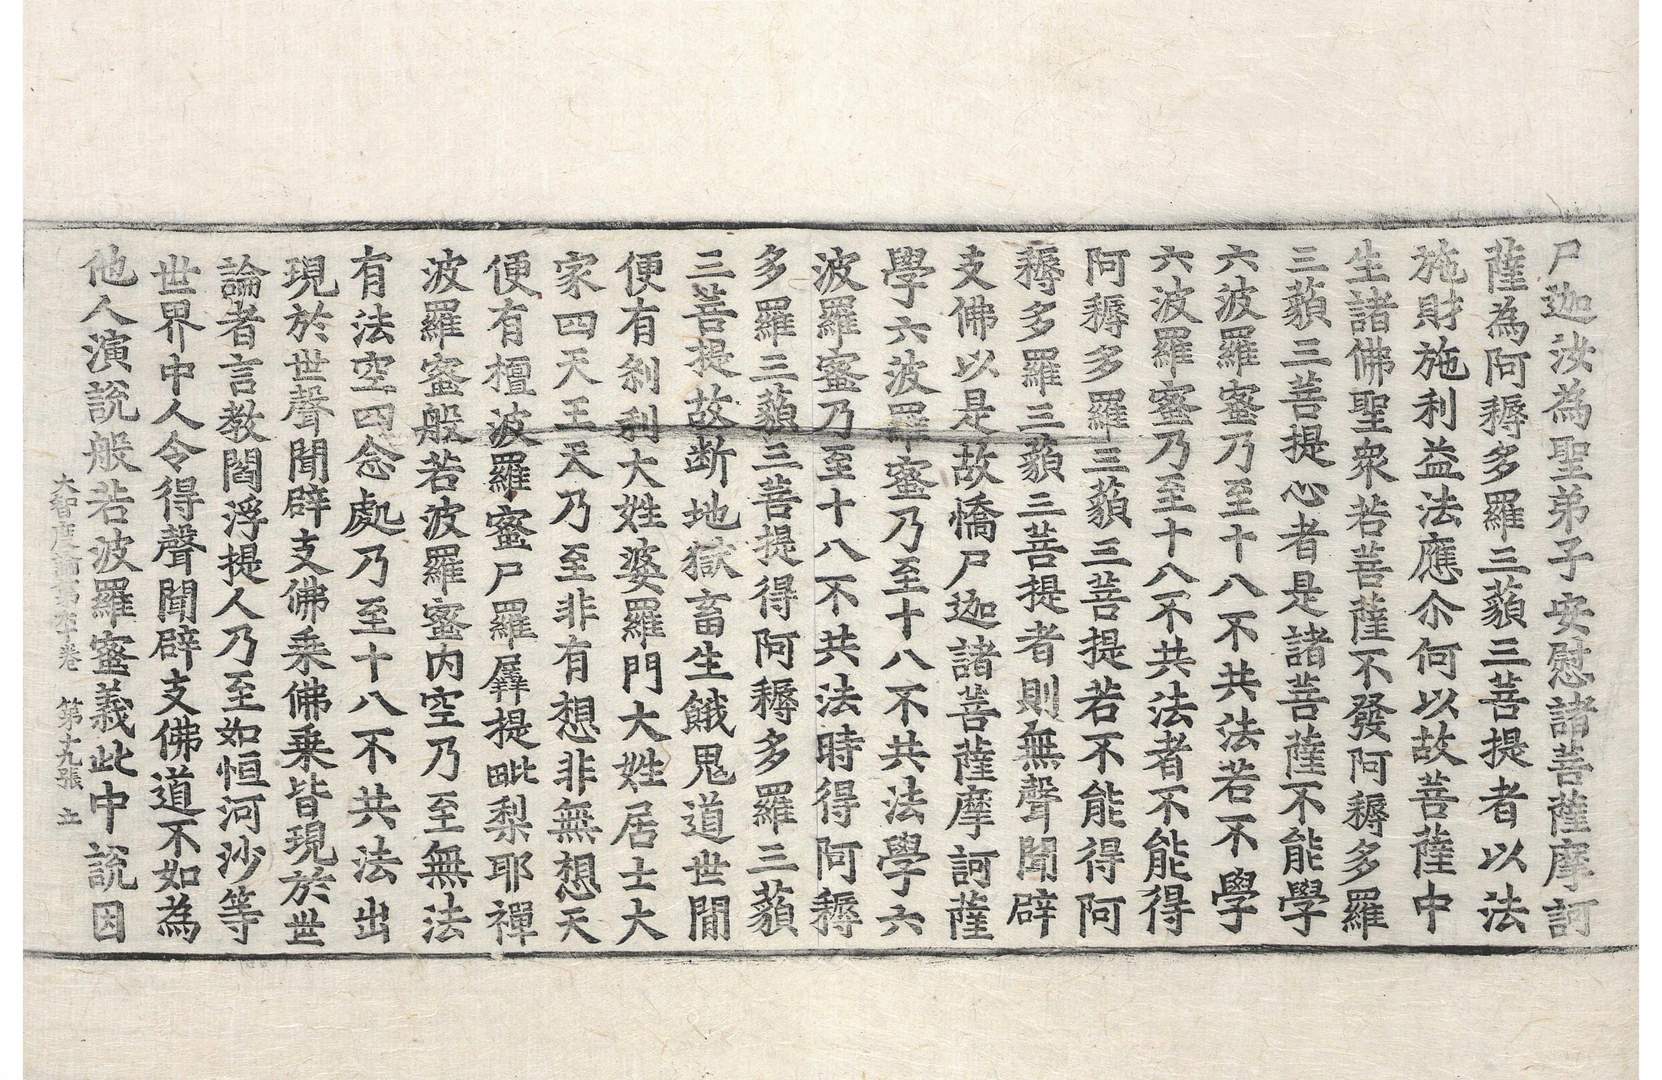 尸迦汝為聖弟子安慰諸菩薩摩訶
薩為阿耨多羅三藐三菩提者以法
施財施利益法應尒何以故菩薩中
生諸佛聖衆若菩薩不發阿耨多羅
三藐三菩提心者是諸菩薩不能學
六波羅蜜乃至十八不共法若不學
六波羅蜜乃至十八不共法者不能得
阿耨多羅三藐三菩提若不能得阿
耨多羅三藐三菩提者則無聲聞辟
支佛以是故憍尸迦諸菩薩摩訶薩
學六波羅蜜乃至十八不共法學六
波羅蜜乃至十八不共法時得阿耨
多羅三藐三菩提得阿耨多羅三藐
三菩提故断地獄畜生餓鬼道世間
便有刹利大姓婆羅門大姓居士大
家四天王天乃至非有想非無想天
便有檀波羅蜜尸羅羼提毗梨耶禪
波羅蜜般若波羅蜜内空乃至無法
有法空四念處乃至十八不共法出
現於世聲聞辟支佛乘佛乘皆現於世
論者言教閻浮提人乃至如恒河沙等
世界中人令得聲聞辟支佛道不如為
他人演說般若波羅蜜義此中說因
大智度論第六十卷 第十九張 立